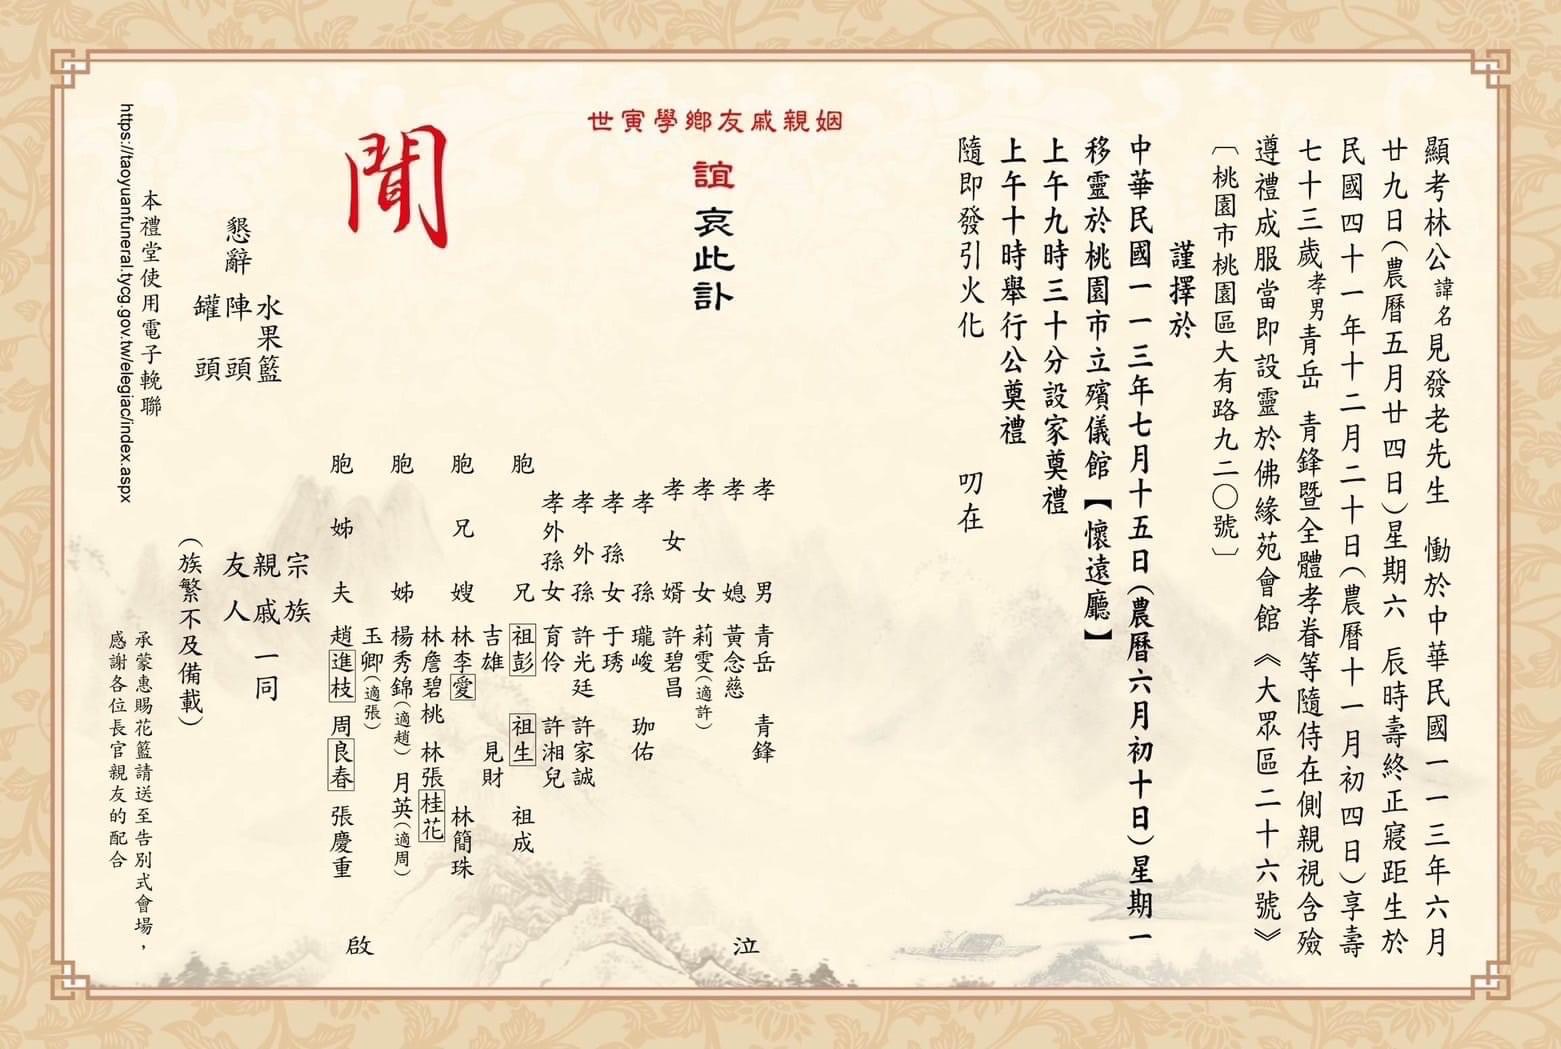 顯考林公諱名見發老先生 慟於中華民國一一三年六月
廿九日(農曆五月廿四日)星期六 辰時壽終正寢距生於
民國四十一年十二月二十日(農曆十一月初四日)享壽
七十三歲孝男青岳 青鋒暨全體孝眷等隨侍在側親視含殮
遵禮成服當即設靈於佛緣苑會館《大眾區二十六號》
〔桃園市桃園區大有路九二〇號〕
謹擇於
中華民國一一三年七月十五日(農曆六月初十日)星期一
移靈於桃園市立殯儀館【懷遠廳】
上午九時三十分設家奠禮
上午十時舉行公奠禮
隨即發引火化 叨在
姻親戚友鄉學寅世
誼哀此訃
聞
孝男 青岳 青鋒
孝媳 黃念慈
孝女 莉雯(適許)
孝女婿 許碧昌
孝孫 瓏峻 珈佑
孝孫女 于琇
孝外孫 許光廷 許家誠
孝外孫女 育伶 許湘兒
泣
胞兄 祖彭 祖生 祖成
吉雄 見財
胞兄嫂 林李愛 林簡珠
林詹碧桃 林張桂花
胞姊 楊秀錦(適趙) 月英(適周)
玉卿(適張)
胞姊夫 趙進枝 周良春 張慶重
啟
宗族
親戚一同
友人
(族繁不及備載)
懇辭
水果籃
陣頭
罐頭
本禮堂使用電子輓聯
https://taoyuanfuneral.tycg.gov.tw/elegiac/index.aspx
承蒙惠賜花籃請送至告別式會場,
感謝各位長官親友的配合